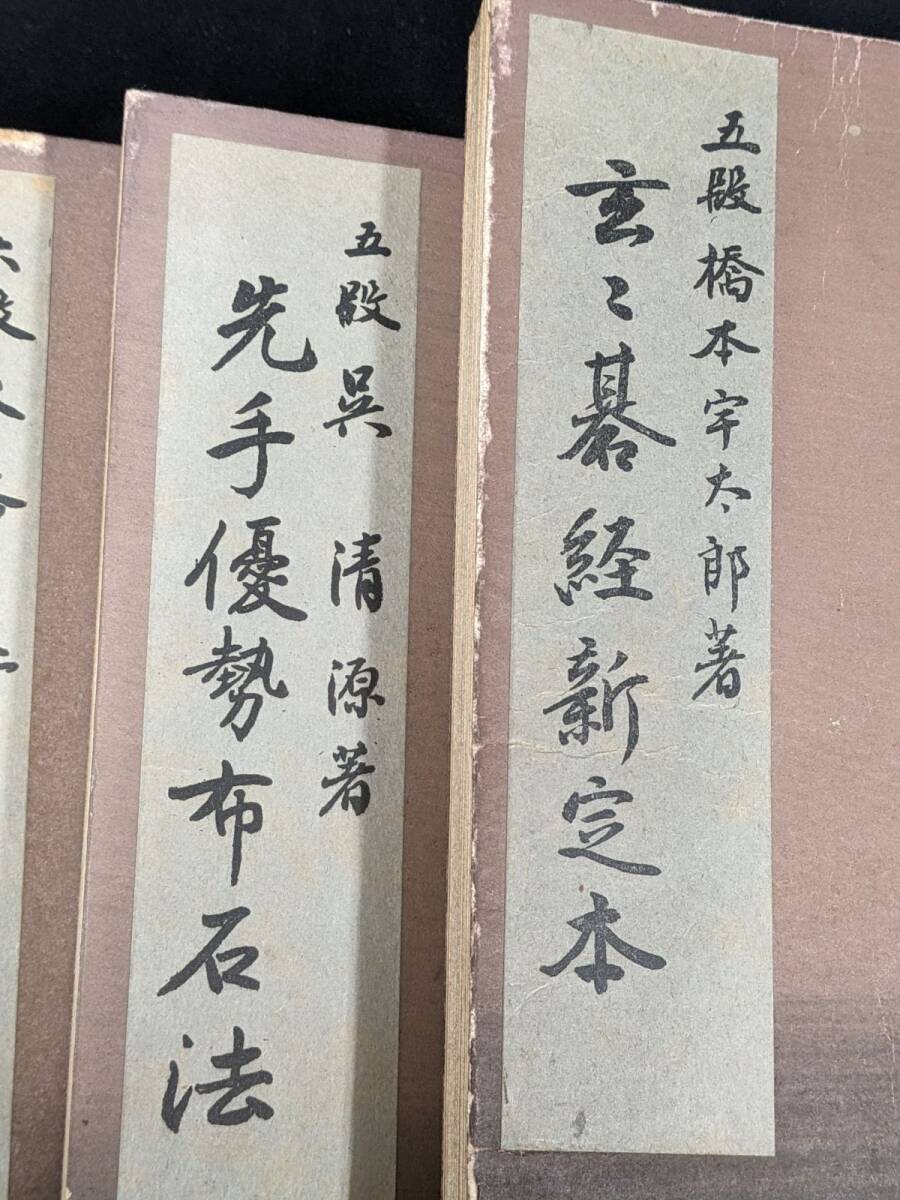 五段 橋本宇太郎著
玄〻碁経新定本
五段 呉 清源著
先手優勢布石法
六段